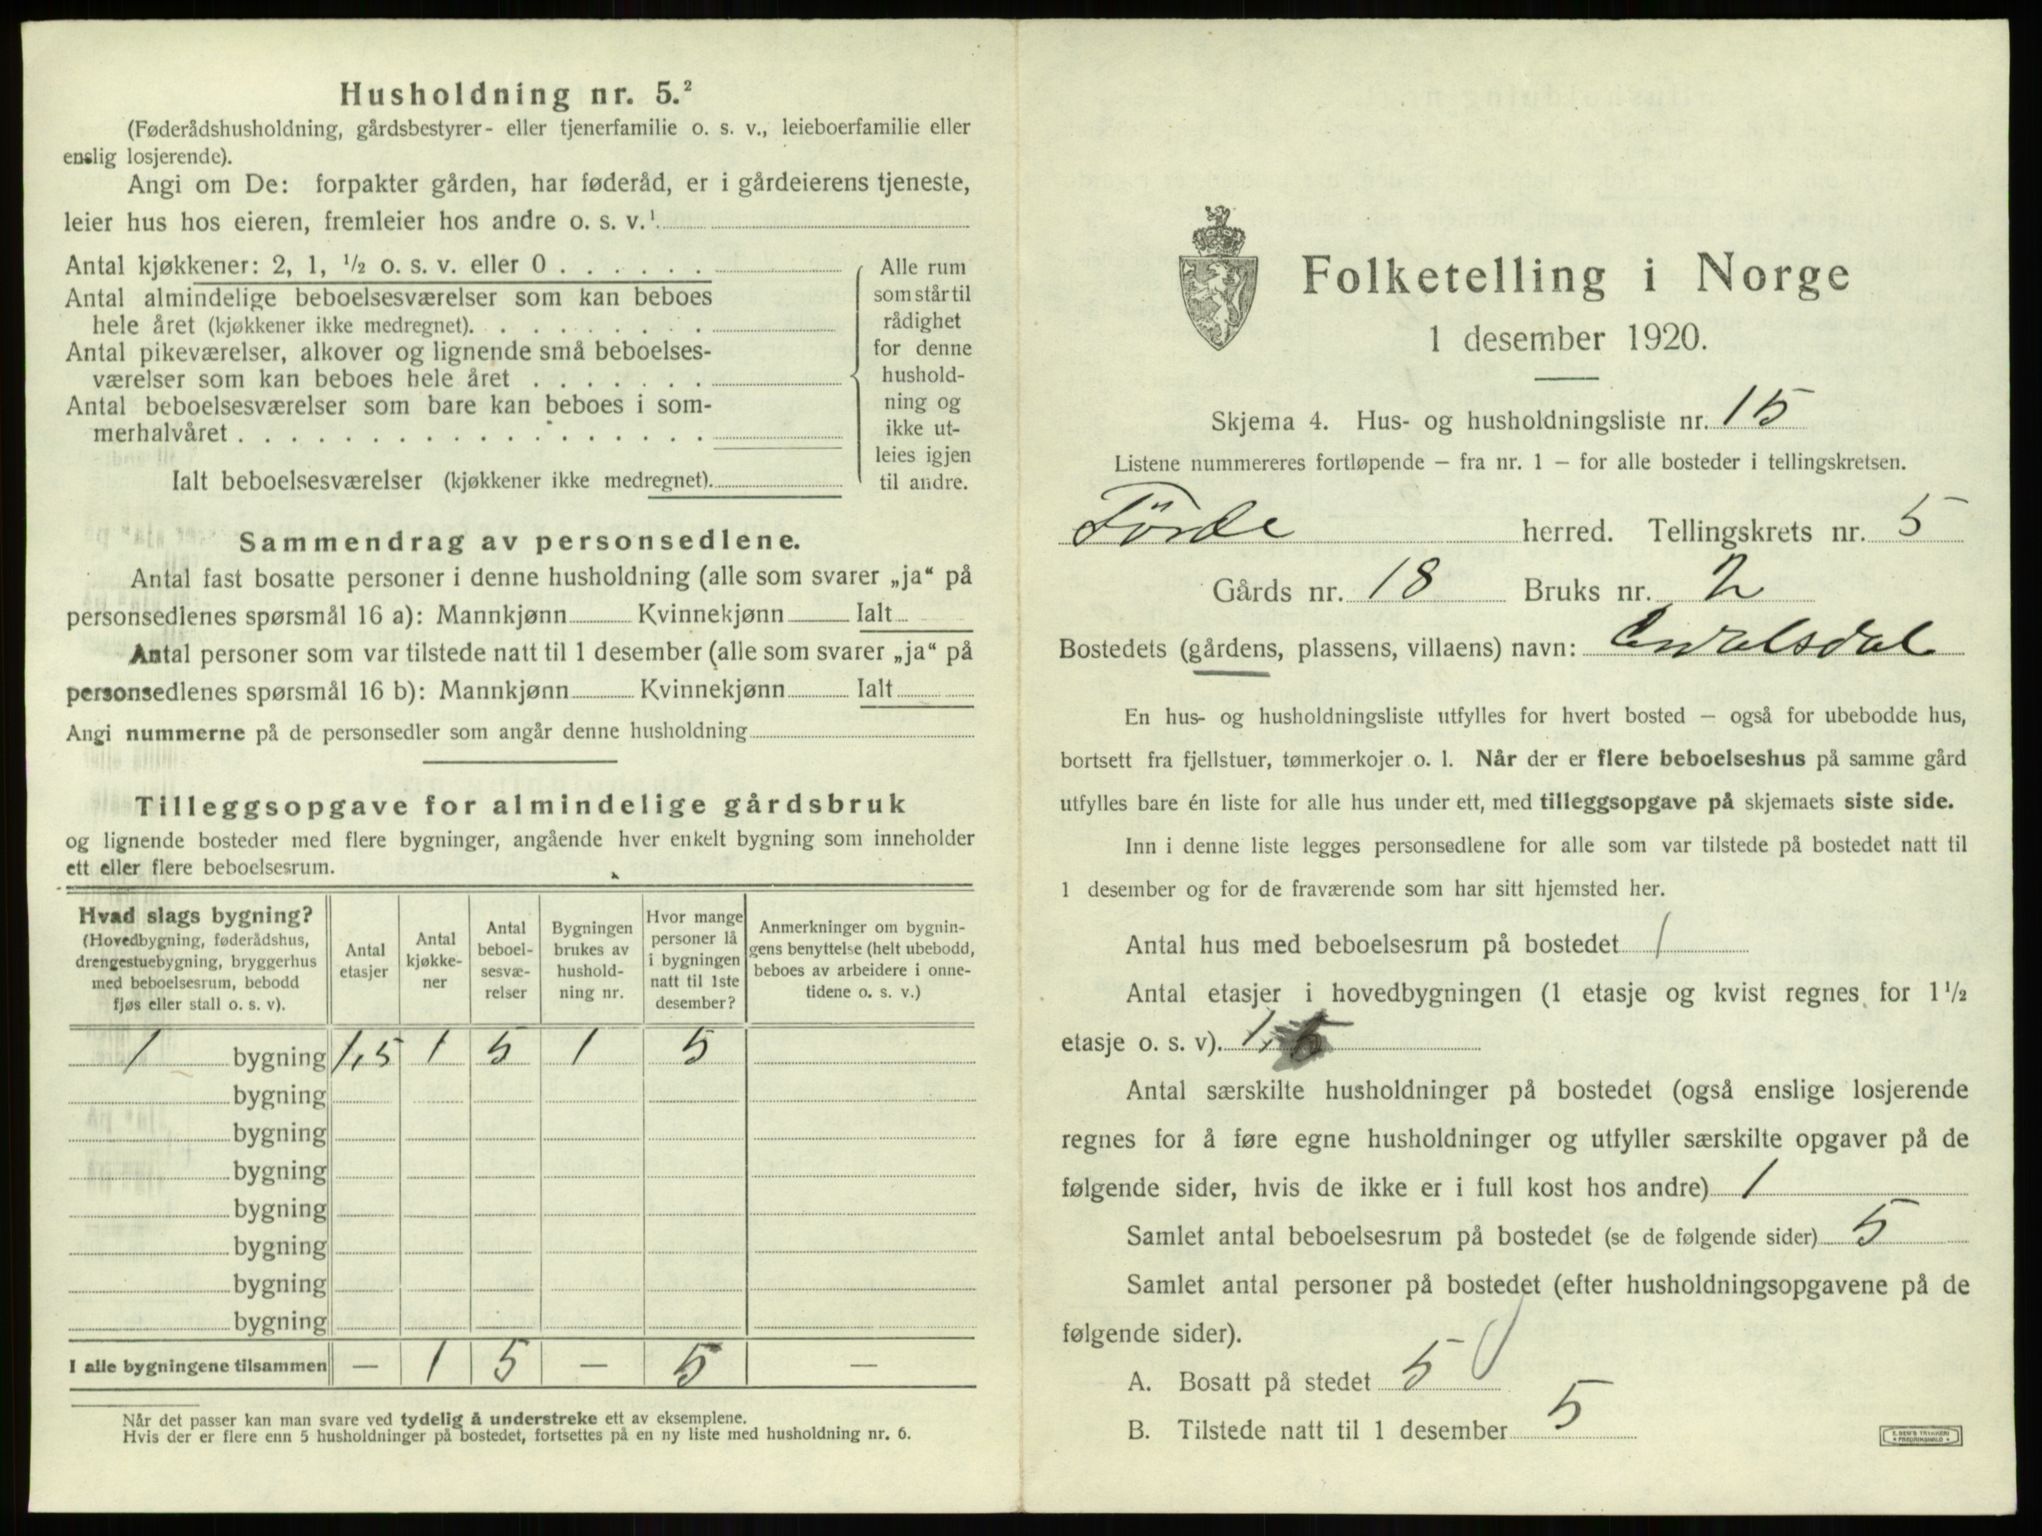 Husholdning nr. 5.²
(Føderådshusholdning, gårdsbestyrer- eller tjenerfamilie o. s. v., leieboerfamilie eller
enslig losjerende).
Angi om De: forpakter gården, har føderåd, er i gårdeierens tjeneste,
leier hus hos eieren, fremleier hos andre o. s. v.¹
Antal kjøkkener: 2, 1, ½ o. s. v. eller 0
Antal almindelige beboelsesværelser som kan beboes
hele året (kjøkkener ikke medregnet).
Antal pikeværelser, alkover og lignende små beboelses-
værelser som kan beboes hele året
Antal beboelsesværelser som bare kan beboes i som-
merhalvåret
Ialt beboelsesværelser (kjøkkener ikke medregnet).
Alle rum
som står til
rådighet
for denne
hushold-
ning og
ikke ut-
leies igjen
til andre.
Sammendrag av personsedlene.
Antal fast bosatte personer i denne husholdning (alle som svarer „ja“ på
personsedlenes spørsmål 16 a): Mannkjønn Kvinnekjønn Ialt
Antal personer som var tilstede natt til 1 desember (alle som svarer „ja“ på
personsedlenes spørsmål 16 b): Mannkjønn Kvinnekjønn Ialt
Angi nummerne på de personsedler som angår denne husholdning
Tilleggsopgave for almindelige gårdsbruk
og lignende bosteder med flere bygninger, angående hver enkelt bygning som inneholder
ett eller flere beboelsesrum.
Hvad slags bygning?
(Hovedbygning, føderådshus,
drengestuebygning, bryggerhus
med beboelsesrum, bebodd
fjøs eller stall o. s. v).
Antal
etasjer
Antal
kjøkke-
ner
Antal
beboel-
sesvæ-
relser
Bygningen
brukes av
hushold-
ning nr.
Hvor mange
personer lå
i bygningen
natt til 1ste
desember?
Anmerkninger om bygnin-
gens benyttelse (helt ubebodd,
beboes av arbeidere i onne-
tidene o. s. v.)
1 bygning 1,5 1 5 1 5
bygning
bygning
bygning
bygning
bygning
bygning
bygning
I alle bygningene tilsammen — 1 5 — 5 —
Når det passer kan man svare ved tydelig å understreke ett av eksemplene.
Hvis der er flere enn 5 husholdninger på bostedet, fortsettes på en ny liste med husholdning nr. 6.
Folketelling i Norge
1 desember 1920.
Skjema 4. Hus- og husholdningsliste nr. 15
Listene nummereres fortløpende — fra nr. 1 — for alle bosteder i tellingskretsen.
Förde herred. Tellingskrets nr. 5
Gårds nr. 18 Bruks nr. 2
Bostedets (gårdens, plassens, villaens) navn:
En hus- og husholdningsliste utfylles for hvert bosted — også for ubebodde hus,
bortsett fra fjellstuer, tømmerkojer o. l. Når der er flere beboelseshus på samme gård
utfylles bare én liste for alle hus under ett, med tilleggsopgave på skjemaets siste side.
Inn i denne liste legges personsedlene for alle som var tilstede på bostedet natt til
1 desember og for de fraværende som har sitt hjemsted her.
Antal hus med beboelsesrum på bostedet 1
Antal etasjer i hovedbygningen (1 etasje og kvist regnes for 1½
etasje o. s. v). 1,5
Antal særskilte husholdninger på bostedet (også enslige losjerende
regnes for å føre egne husholdninger og utfyller særskilte opgaver på de
følgende sider, hvis de ikke er i full kost hos andre) 1
Samlet antal beboelsesrum på bostedet (se de følgende sider) 5
Samlet antal personer på bostedet (efter husholdningsopgavene på de
følgende sider).
A. Bosatt på stedet 5
B. Tilstede natt til 1 desember 5